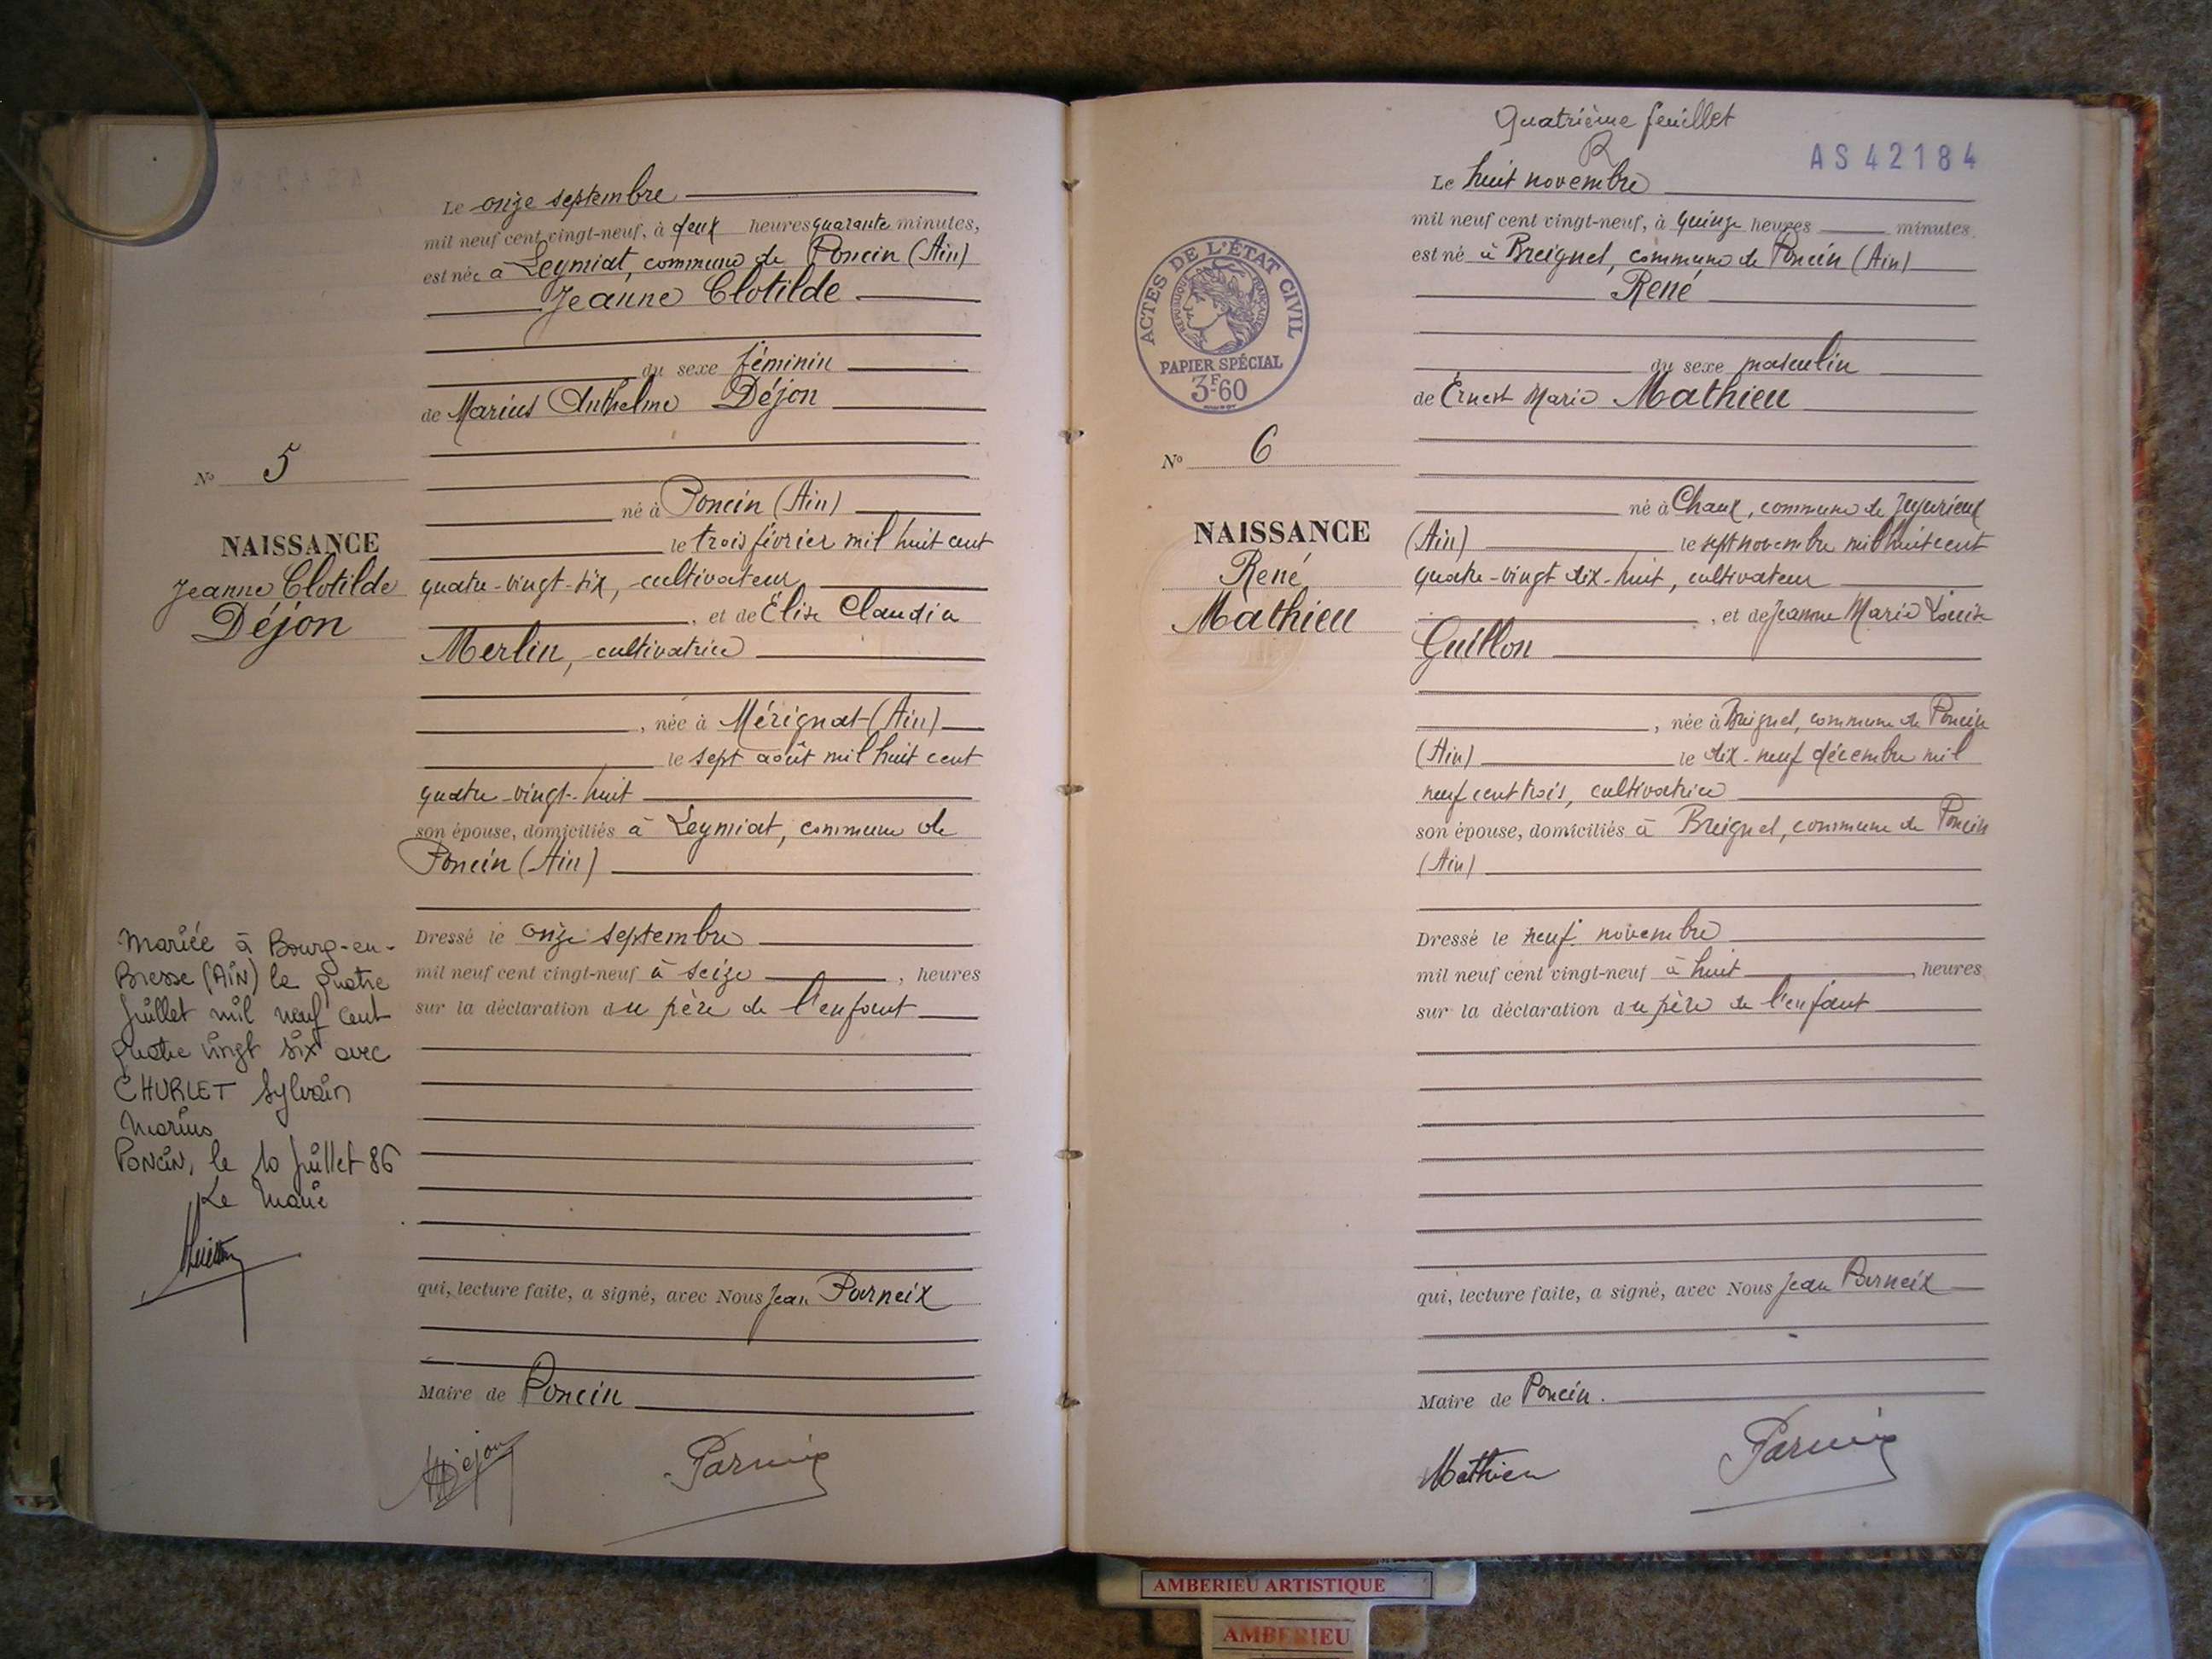 Le onze septembre
mil neuf cent vingt-neuf, à deux heures quarante minutes,
est née à Leymiat, commune de Poncin (Ain)
Jeanne Clotilde
du sexe féminin
de Marius Anthelme Déjon
N° 5
né à Poncin (Ain)
NAISSANCE
le trois février mil huit cent
Jeanne Clotilde
quatre-vingt-six, cultivateur
Déjon
, et de Élise Claudia
Merlin, cultivatrice
, née à Mérignat (Ain)
le sept août mil huit cent
quatre-vingt-huit
son épouse, domiciliés à Leymiat, commune de
Poncin (Ain)
Dressé le onze septembre
mil neuf cent vingt-neuf à seize , heures
sur la déclaration du père de l'enfant
Mariée à Bourg-en-
Bresse (AIN) le quatre
juillet mil neuf cent
quatre vingt six avec
CHURLET Sylvain
Marius
PONCIN, le 10 juillet 86
Le Maire
qui, lecture faite, a signé, avec Nous Jean Parneix
Maire de Poncin
Déjon
Parneix
Quatrième feuillet
AS 42184
Le huit novembre
mil neuf cent vingt-neuf, à quinze heures minutes
est né à Breignet, commune de Poncin (Ain)
René
ACTES DE L'ÉTAT CIVIL
RÉPUBLIQUE FRANÇAISE
PAPIER SPÉCIAL
3F60
du sexe masculin
de Ernest Marie Mathieu
N° 6
né à Chaux, commune de Jujurieux
NAISSANCE
(Ain) le sept novembre mil huit cent
René
quatre-vingt dix-huit, cultivateur
Mathieu
, et de Jeanne Marie Louise
Guillon
, née à Breignet, commune de Poncin
(Ain) le dix-neuf décembre mil
neuf cent trois, cultivatrice
son épouse, domiciliés à Breignet, commune de Poncin
(Ain)
Dressé le neuf novembre
mil neuf cent vingt-neuf à huit , heures
sur la déclaration du père de l'enfant
qui, lecture faite, a signé, avec Nous Jean Parneix
Maire de Poncin.
Mathieu
Parneix
AMBERIEU ARTISTIQUE
AMBERIEU